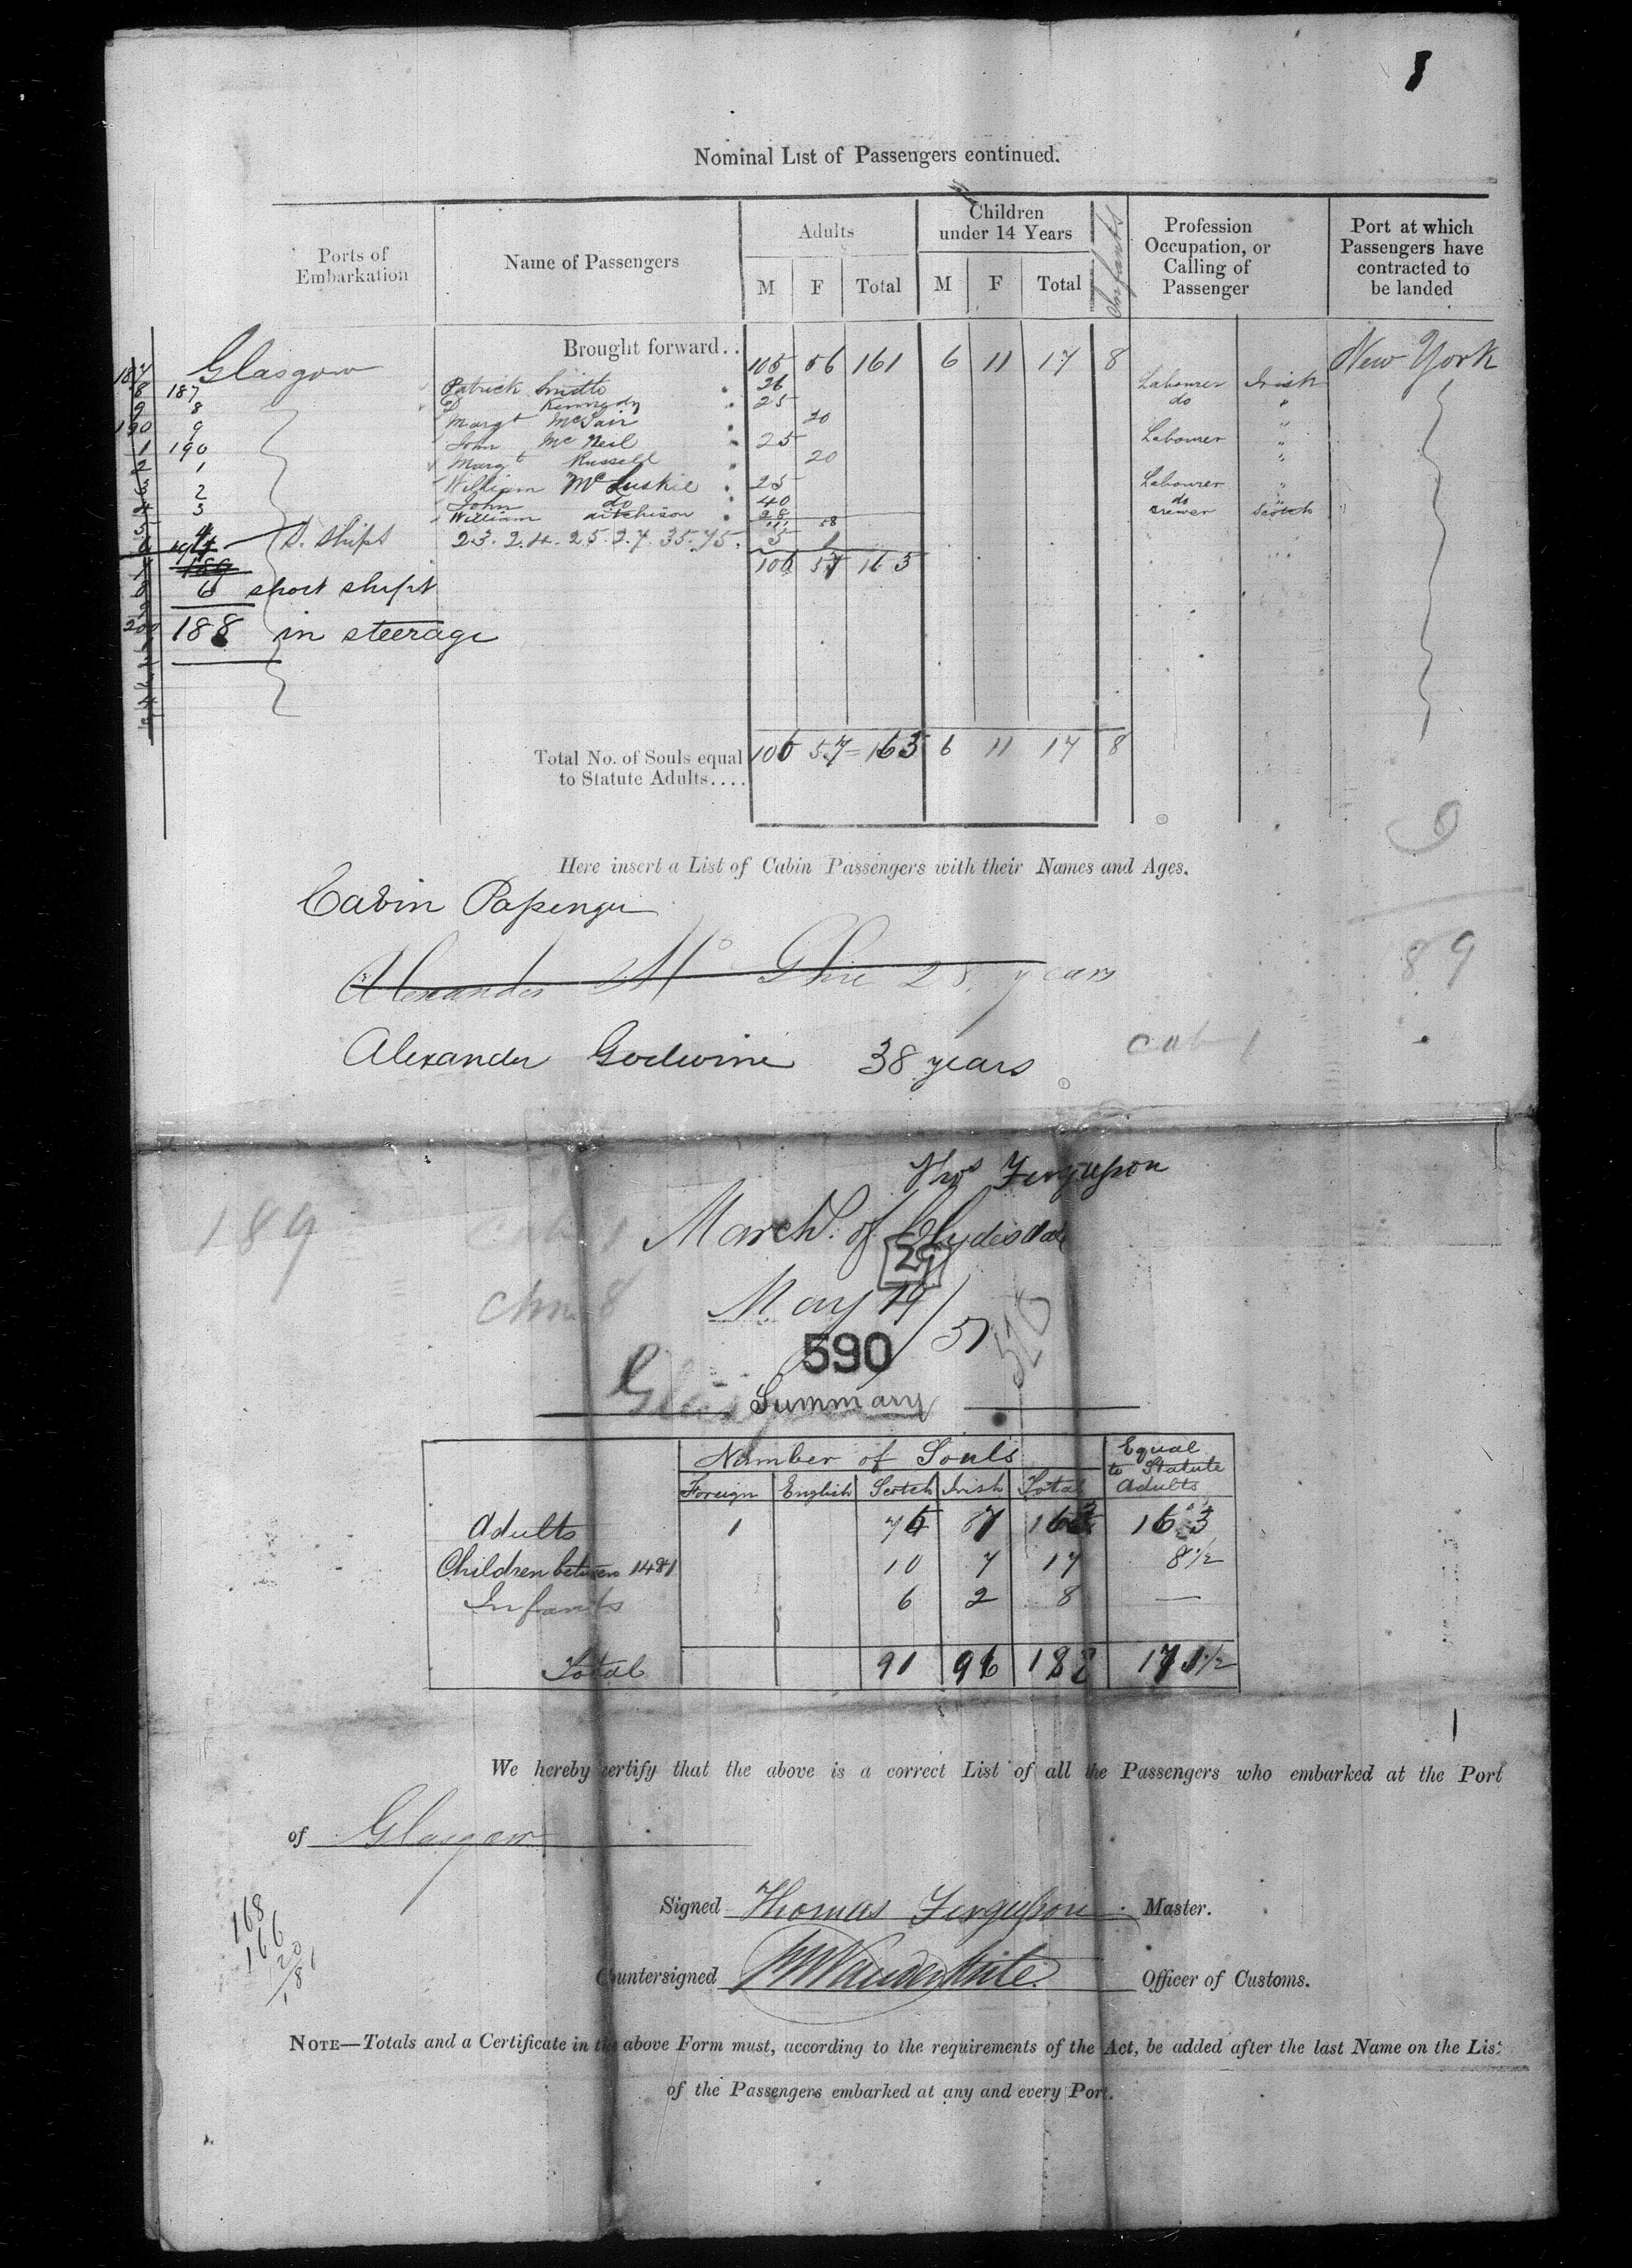 Nominal List of Passengers continued.
Ports of Embarkation
Name of Passengers
Adults
M F Total
Children under 14 Years
M F Total
Infants
Profession Occupation, or Calling of Passenger
Port at which Passengers have contracted to be landed
Glasgow Brought forward.. 105 56 161 6 11 17 8 New York
187 Patrick Smith 26 Labourer Irish
8 D Kennedy 25 do "
9 Margt 20 "
190 John McNeil 25 Labourer "
1 Margt Russell 20 "
2 William McLuskie 25 Labourer "
3 John do 40 do "
4 William Aitchison 28 Brewer Scotch
111 58
S. Shipt 23. 24. 25. 27. 35. 75. 5 1
106 57 163
6 short shipt
188 in steerage
Total No. of Souls equal to Statute Adults.... 106 57 = 163 6 11 17 8
Here insert a List of Cabin Passengers with their Names and Ages.
Cabin Passenger
Alexander Mc Ghie 28 years
Alexander Godwine 38 years
cab 1
89
Thos Fergusson
189
cab 1
March. of Clydesdale
29
chn 8
May 19/51
590
Glasgow
Summary
Number of Souls
Equal to Statute Adults
Foreign English Scotch Irish Total
Adults 1 75 87 163 163
Children between 14 & 1 10 7 17 8½
Infants 6 2 8 —
Total 91 96 188 171½
We hereby certify that the above is a correct List of all the Passengers who embarked at the Port
of Glasgow
168
166
20
181
Signed Thomas Fergusson Master.
Countersigned Officer of Customs.
NOTE—Totals and a Certificate in the above Form must, according to the requirements of the Act, be added after the last Name on the List
of the Passengers embarked at any and every Port.